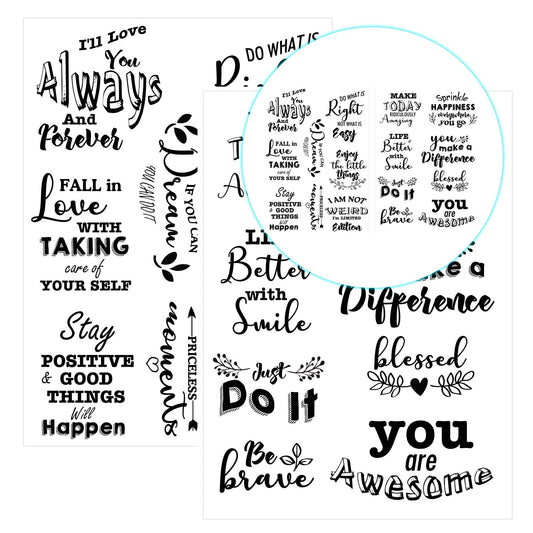 I'll Love
You
Always
And
Forever
FALL in
Love
WITH
TAKING
care of
YOUR SELF
Stay
POSITIVE
& GOOD
THINGS
Will
Happen
IF YOU CAN
Dream
YOU CAN DO IT
PRICELESS
moments
DO WHAT IS
LIFE
Better
with
Smile
Just
Do It
Be
brave
make a
Difference
blessed
you
are
Awesome
I'll Love
You
Always
And
Forever
FALL in
Love
WITH
TAKING
care of
YOUR SELF
Stay
POSITIVE
& GOOD
THINGS
Will
Happen
IF YOU CAN
Dream
PRICELESS
moments
DO WHAT IS
Right
NOT WHAT IS
Easy
Enjoy
the little
things
I AM NOT
WEIRD
I'm LIMITED
Edition
MAKE
TODAY
RIDICULOUSLY
Amazing
LIFE
Better
with
Smile
Just
Do It
Be
brave
Sprinkle
HAPPINESS
everywhere
you go
you
make a
Difference
blessed
you
are
Awesome